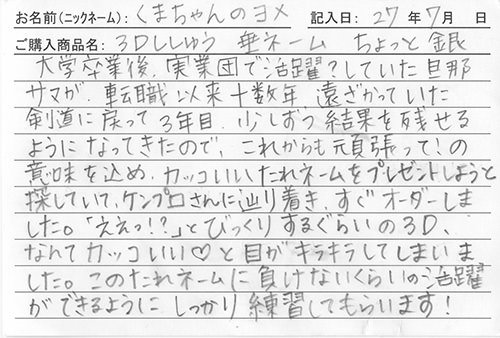 お名前(ニックネーム): くまちゃんのヨメ 記入日: 27 年 7 月 日
ご購入商品名: 3Dししゅう 垂ネーム ちょっと銀
大学卒業後、実業団で活躍?していた旦那
サマが、転職以来十数年 遠ざかっていた
剣道に戻って3年目 少しずつ結果を残せる
ようになってきたので、これからも頑張って!の
意味を込め、カッコいいたれネームをプレゼントしようと
探していて、ケンプロさんに辿り着き、すぐオーダーしま
した。「ええっ!?」とびっくりするぐらいの3D、
なんてカッコいい♡と目がキラキラしてしまいま
した。このたれネームに負けないくらいの活躍
ができるように しっかり練習してもらいます!